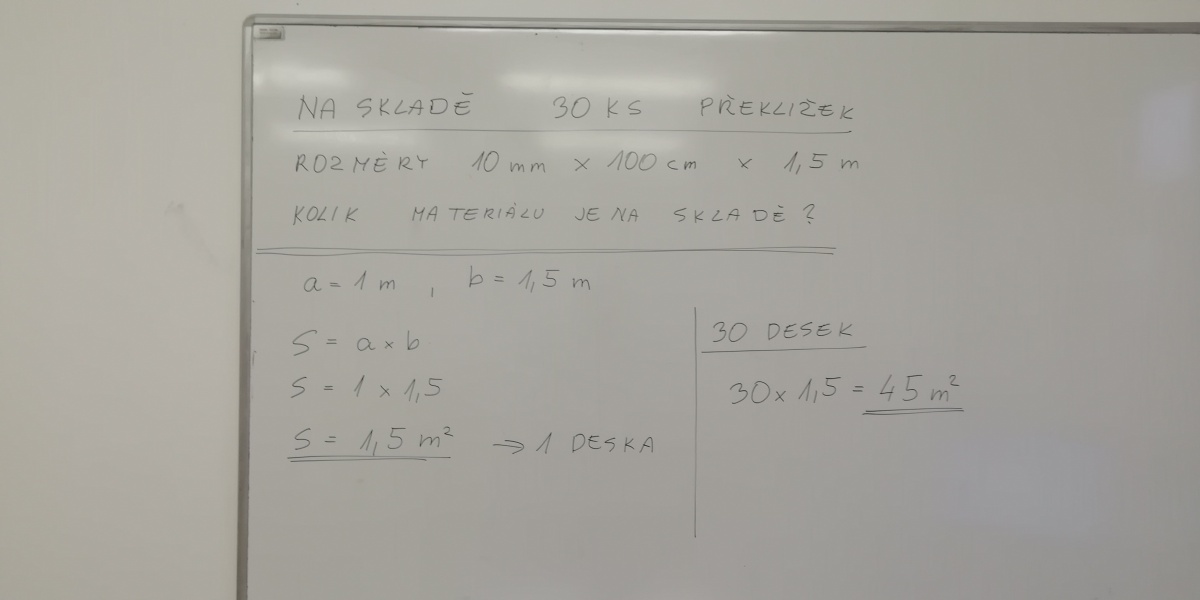 NA SKLADĚ 30 KS PŘEKLIŽEK
ROZMĚRY 10 mm × 100 cm × 1,5 m
KOLIK MATERIÁLU JE NA SKLADĚ?
a = 1 m , b = 1,5 m
S = a × b
S = 1 × 1,5
S = 1,5 m² → 1 DESKA
30 DESEK
30 × 1,5 = 45 m²